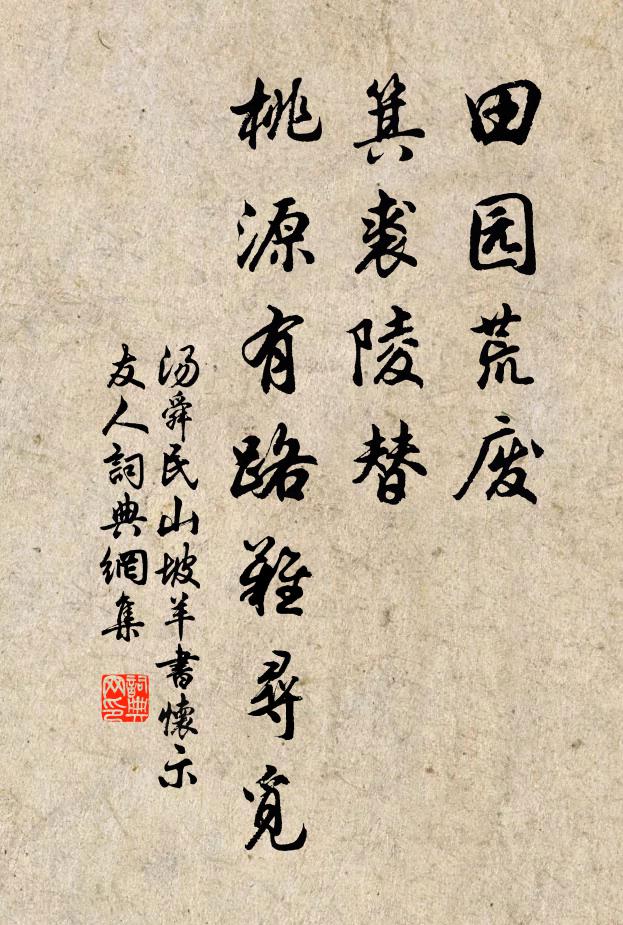 田园荒废
箕裘陵替
桃源有路難尋覓
汤舜民山坡羊書懷示
友人詞典網集
詞典
网印